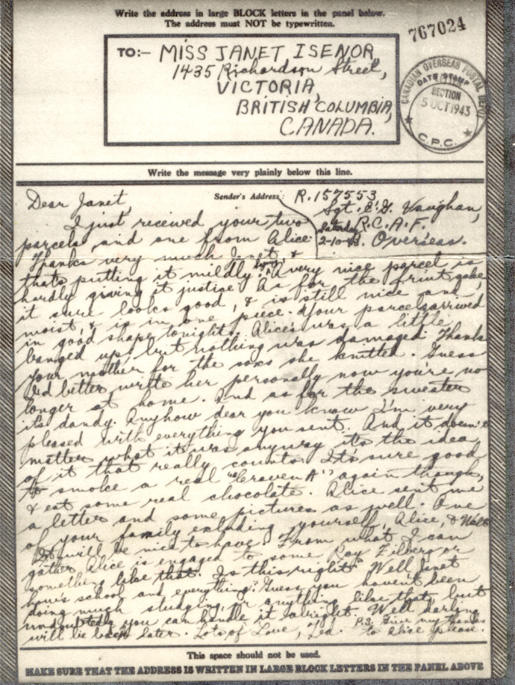 Write the address in large BLOCK letters in the panel below.
The address must NOT be typewritten.
767024
TO:- MISS JANET ISENOR
1435 Richardson Street,
VICTORIA,
BRITISH COLUMBIA,
CANADA.
CANADIAN OVERSEAS POSTAL
DATE STAMP
SECTION
5 OCT 1943
C.P.C.
Write the message very plainly below this line.
Sender's Address R.157553
Sgt. Vaughan,
R.C.A.F.
Overseas.
Saturday
2-10-43
Dear Janet,
I just received your two
parcels and one from Alice
Thanks very much Janet &
that's putting it mildly. A very nice parcel is
hardly giving it justice. As for the fruit cake,
it sure looks good, & is still nice and
moist, & is in one piece. Your parcel arrived
in good shape tonight. Alice's was a little
banged up, but nothing was damaged. Thank
your mother for the sox she knitted. Guess
I'd better write her personally now you're no
longer at home. And as for the sweater
it's dandy. Anyhow dear you know I'm very
pleased with everything you sent. And it doesn't
matter what it was anyway it's the idea
of it that really counts. It's sure good
to smoke a real "Craven A" again though,
& eat some real chocolate. Alice sent me
a letter and some pictures as well. One
of your family including yourself, Alice, &
It will be nice to have. From what I can
gather Alice is engaged to some Roy Filberg or
something like that. Is this right? Well Janet
how's school and everything? Guess you haven't been
doing much studying or anything like that, but
undoubtedly you can handle it alright. Well darling
will be back later. Lots of Love,
P.S. Give my thanks
to Alice please.
This space should not be used.
MAKE SURE THAT THE ADDRESS IS WRITTEN IN LARGE BLOCK LETTERS IN THE PANEL ABOVE